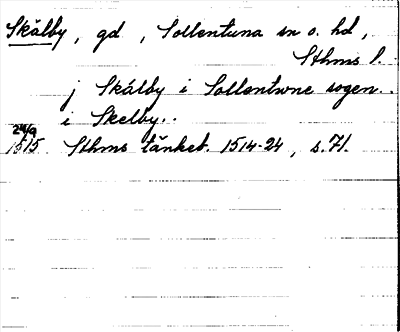 Skälby, gd, Sollentuna sn o. hd,
Sthms l.
j Skälby i Sollentwne sogen..
i Skelby..
24/9
1515 Sthms tänkeb. 1514-24, s.71.